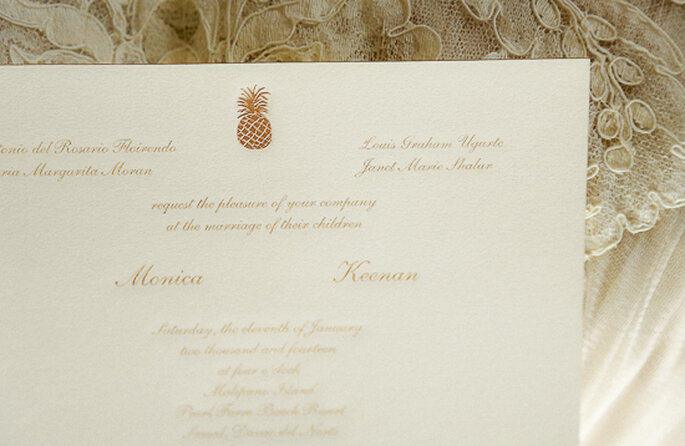 del Rosario Floirendo
Louis Graham Ugarte
Margarita Moran
Janet Marie Shalur
request the pleasure of your company
at the marriage of their children
Monica
Keenan
Saturday, the eleventh of January
two thousand and fourteen
at four o'clock
Malipano Island
Pearl Farm Beach Resort
Samal, Davao del Norte